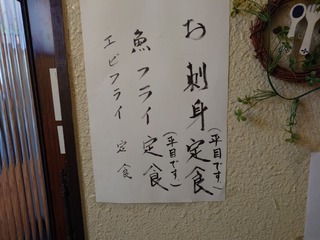 お刺身定食(平目です)
魚フライ定食(平目です)
エビフライ定食